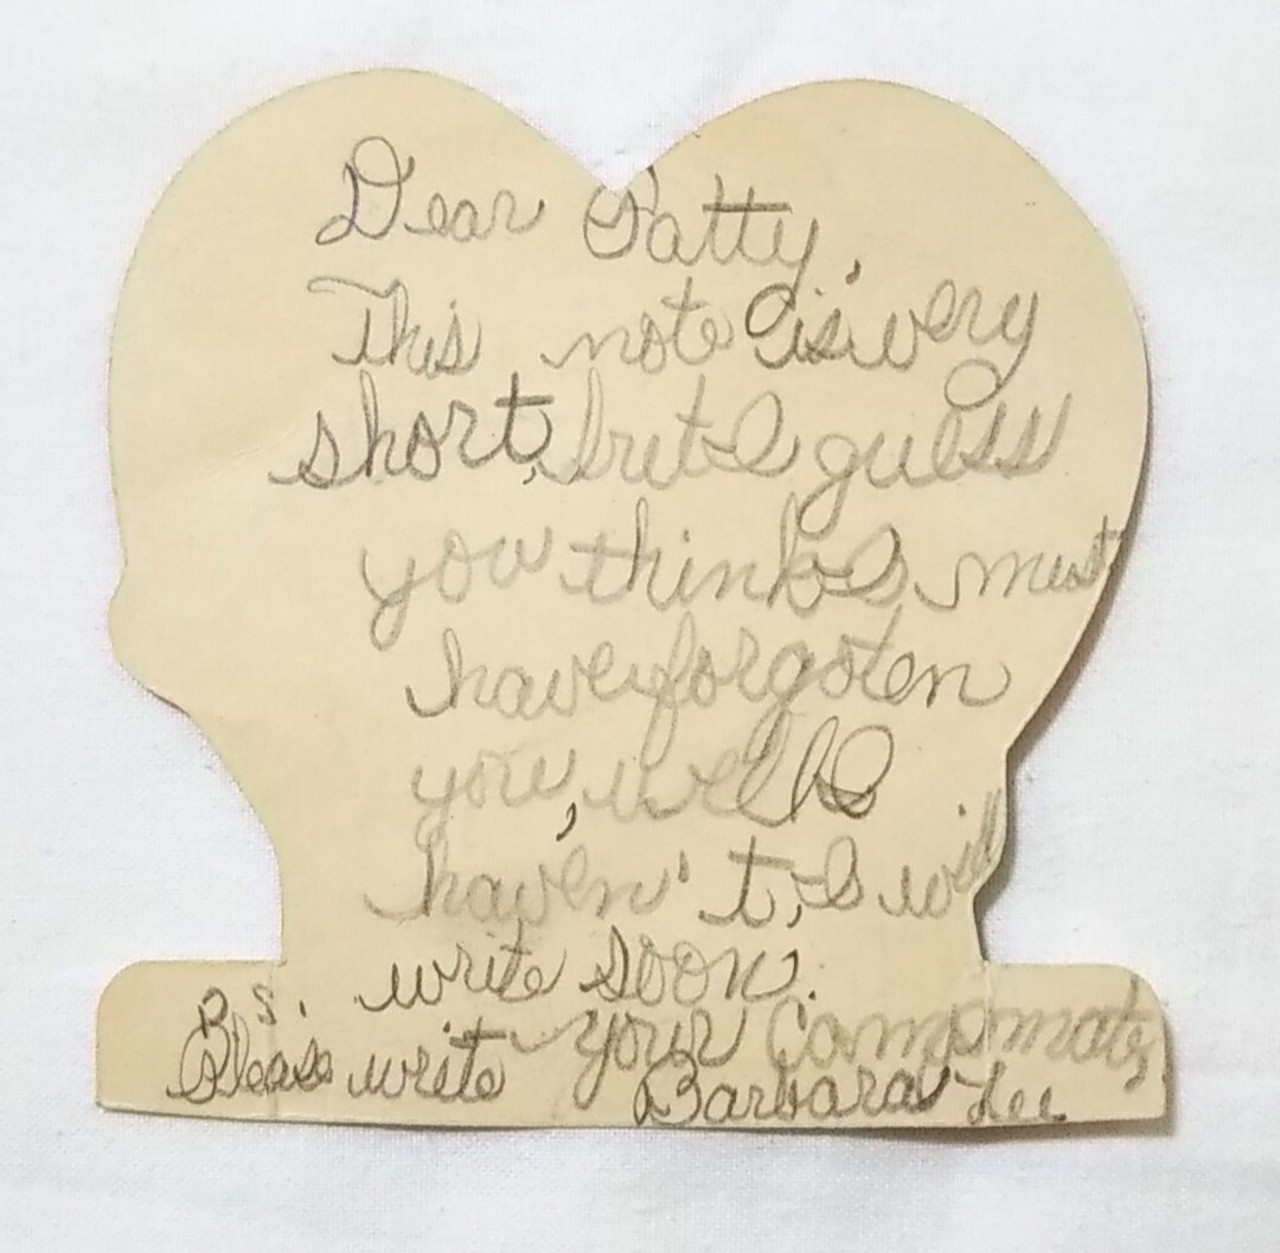 Dear Patty,
This note is very
short, but I guess
you think I must
have forgoten
you, well I
haven't, I will
write soon.
Your Campmate,
Barbara Lee
P.S.
Please write